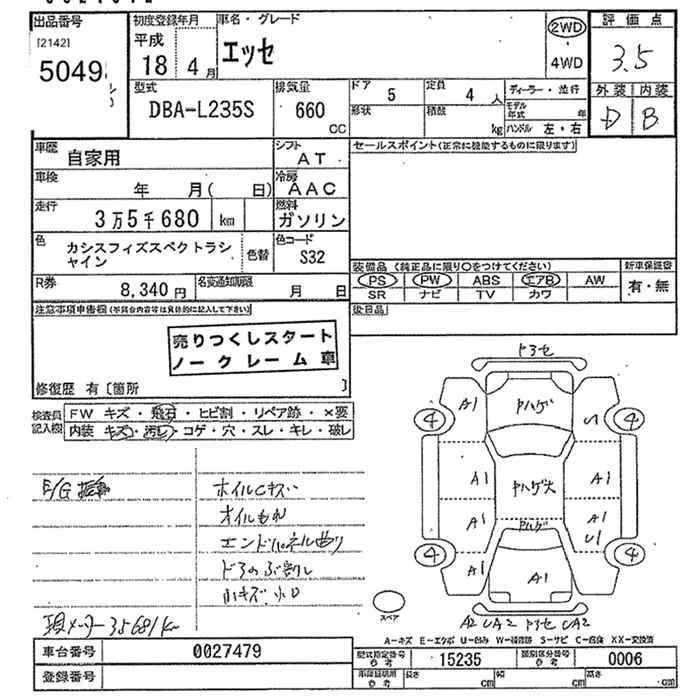 出品番号
[2142]
5049
初度登録年月
平成
18 4 月
車名・グレード
エッセ
2WD
4WD
評価点
3.5
外装 内装
D B
型式
DBA-L235S
排気量
660
CC
ドア
5
定員
4 人
形状
積数
kg
ディーラー・並行
モデル
年式 年
ハンドル 左・右
車歴
自家用
シフト
AT
セールスポイント(正常に機能するものに限ります)
車検
年 月( 日)
冷房
AAC
走行
3万5千680 km
燃料
ガソリン
色
カシスフィズスペクトラシャイン
色替
色コード
S32
R券
8,340円
名変通知期限
月 日
装備品(純正品に限り○をつけてください)
新車保証書
PS PW ABS エアB AW
SR ナビ TV カワ
有・無
後日品
注意事項申告欄(不具合内容等は具体的に記入して下さい)
売りつくしスタート
ノークレーム車
修復歴 有〔箇所 〕
検査員
記入欄
FW キズ・飛石・ヒビ割・リペア跡・×要
内装 キズ・汚れ・コゲ・穴・スレ・キレ・破レ
E/G
ホイルCキズ
オイルもれ
エンドパネル曲り
小キズ 凹
現メーター35681km
ドアセ
A1
ヤハゲ
4
4
A1
ヤハゲ大
A1
A1
ヤハゲ
A1
U1
4
4
A1
A1
スペア
A2 UA2 ドアセ UA2
A-キズ E-エクボ U-凹み W-補修跡 S-サビ C-腐蝕 XX-交換済
車台番号
0027479
型式指定番号
参考
15235
類別区分番号
参考
0006
登録番号
車庫証明用
参考
長さ cm
幅 cm
高さ cm